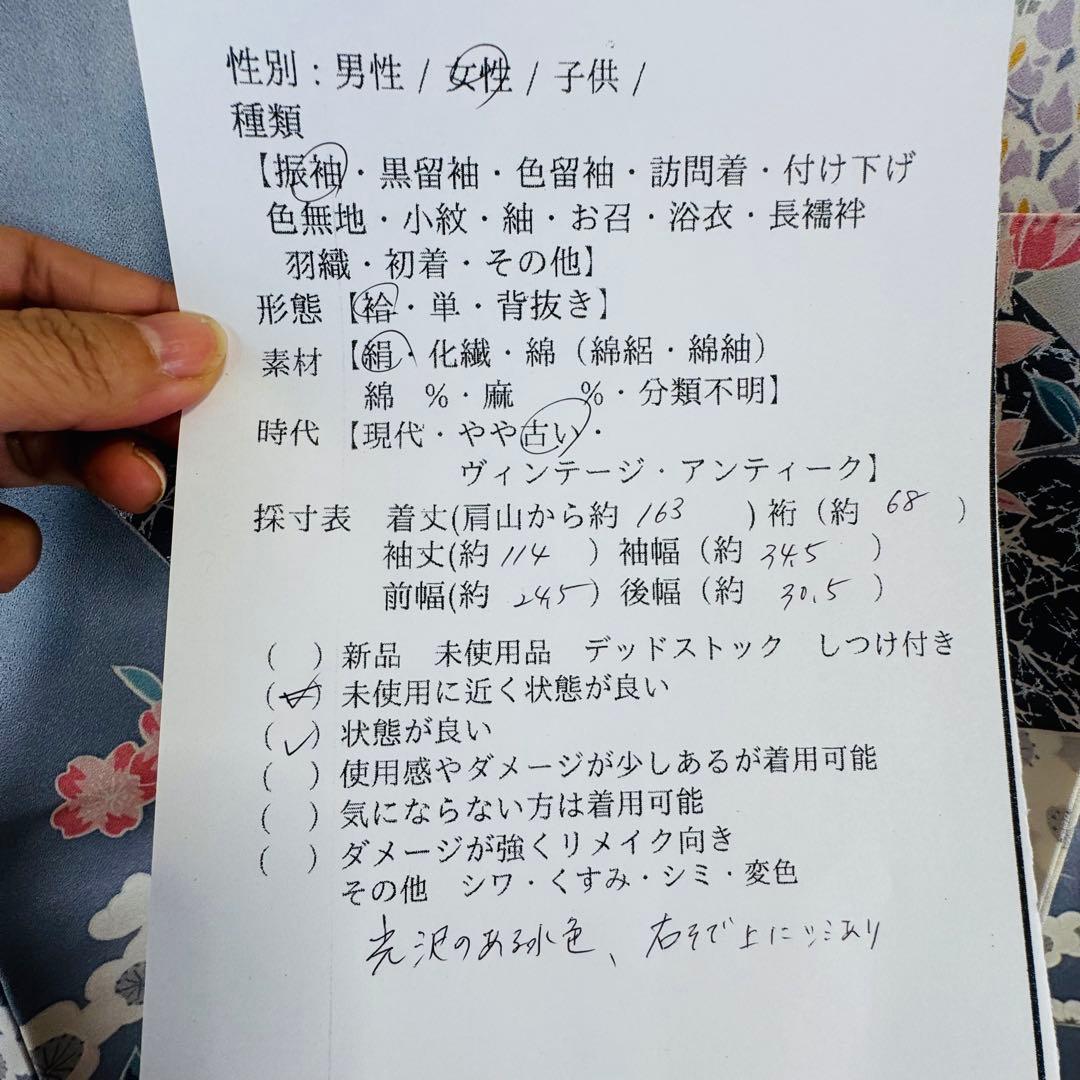 性別：男性 / 女性 / 子供 /
種類
【振袖・黒留袖・色留袖・訪問着・付け下げ
色無地・小紋・紬・お召・浴衣・長襦袢
羽織・初着・その他】
形態 【袷・単・背抜き】
素材 【絹・化繊・綿（綿絽・綿紬）
綿 %・麻 %・分類不明】
時代 【現代・やや古い・
ヴィンテージ・アンティーク】
採寸表 着丈(肩山から約 163 ) 裄（約 68 ）
袖丈(約 114 ）袖幅（約 34.5 ）
前幅(約 24.5 ）後幅（約 30.5 ）
（ ）新品 未使用品 デッドストック しつけ付き
（✓）未使用に近く状態が良い
（✓）状態が良い
（ ）使用感やダメージが少しあるが着用可能
（ ）気にならない方は着用可能
（ ）ダメージが強くリメイク向き
その他 シワ・くすみ・シミ・変色
光沢のある水色、右そで上にシミあり